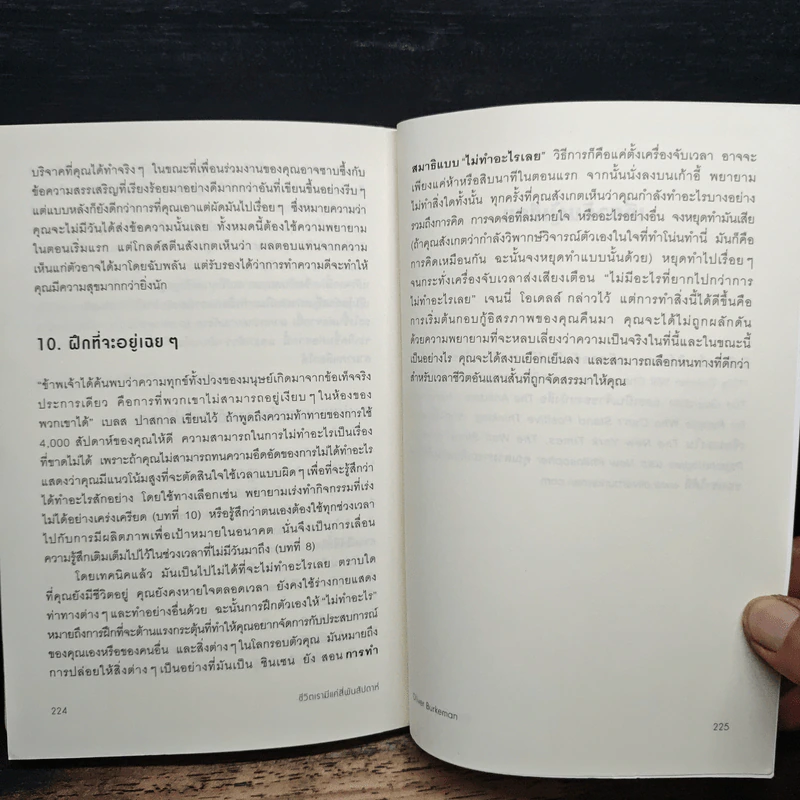 บริจาคที่คุณได้ทำจริงๆ ในขณะที่เพื่อนร่วมงานของคุณอาจซาบซึ้งกับ
ข้อความสรรเสริญที่เรียงร้อยมาอย่างดีมากกว่าอันที่เขียนขึ้นอย่างรีบๆ
แต่แบบหลังก็ยังดีกว่าการที่คุณเอาแต่ผัดมันไปเรื่อยๆ ซึ่งหมายความว่า
คุณจะไม่มีวันได้ส่งข้อความนั้นเลย ทั้งหมดนี้ต้องใช้ความพยายาม
ในตอนเริ่มแรก แต่โกลด์สตีนสังเกตเห็นว่า ผลตอบแทนจากความ
เห็นแก่ตัวอาจได้มาโดยฉับพลัน แต่รับรองได้ว่าการทำความดีจะทำให้
คุณมีความสุขมากกว่ายิ่งนัก
10. ฝึกที่จะอยู่เฉยๆ
“ข้าพเจ้าได้ค้นพบว่าความทุกข์ทั้งปวงของมนุษย์เกิดมาจากข้อเท็จจริง
ประการเดียว คือการที่พวกเขาไม่สามารถอยู่เงียบๆ ในห้องของ
พวกเขาได้” เบลส ปาสกาล เขียนไว้ ถ้าพูดถึงความท้าทายของการใช้
4,000 สัปดาห์ของคุณให้ดี ความสามารถในการไม่ทำอะไรเป็นเรื่อง
ที่ขาดไม่ได้ เพราะถ้าคุณไม่สามารถทนความอึดอัดของการไม่ได้ทำอะไร
แสดงว่าคุณมีแนวโน้มสูงที่จะตัดสินใจใช้เวลาแบบผิดๆ เพื่อที่จะรู้สึกว่า
ได้ทำอะไรสักอย่าง โดยใช้ทางเลือกเช่น พยายามเร่งทำกิจกรรมที่เร่ง
ไม่ได้อย่างเคร่งเครียด (บทที่ 10) หรือรู้สึกว่าตนเองต้องใช้ทุกช่วงเวลา
ไปกับการมีผลิตภาพเพื่อเป้าหมายในอนาคต นั่นจึงเป็นการเลื่อน
ความรู้สึกเติมเต็มไปไว้ในช่วงเวลาที่ไม่มีวันมาถึง (บทที่ 8)
โดยเทคนิคแล้ว มันเป็นไปไม่ได้ที่จะไม่ทำอะไรเลย ตราบใด
ที่คุณยังมีชีวิตอยู่ คุณยังคงหายใจตลอดเวลา ยังคงใช้ร่างกายแสดง
ท่าทางต่างๆ และทำอย่างอื่นด้วย ฉะนั้นการฝึกตัวเองให้ “ไม่ทำอะไร”
หมายถึงการฝึกที่จะต้านแรงกระตุ้นที่ทำให้คุณอยากจัดการกับประสบการณ์
ของคุณเองหรือของคนอื่น และสิ่งต่างๆ ในโลกรอบตัวคุณ มันหมายถึง
การปล่อยให้สิ่งต่างๆ เป็นอย่างที่มันเป็น ชินเซน ยัง สอน การทำ
ชีวิตเรามีแค่สี่พันสัปดาห์
224
สมาธิแบบ “ไม่ทำอะไรเลย” วิธีการก็คือแค่ตั้งเครื่องจับเวลา อาจจะ
เพียงแค่ห้าหรือสิบนาทีในตอนแรก จากนั้นนั่งลงบนเก้าอี้ พยายาม
ไม่ทำสิ่งใดทั้งนั้น ทุกครั้งที่คุณสังเกตเห็นว่าคุณกำลังทำอะไรบางอย่าง
รวมถึงการคิด การจดจ่อที่ลมหายใจ หรืออะไรอย่างอื่น จงหยุดทำมันเสีย
(ถ้าคุณสังเกตว่ากำลังวิพากษ์วิจารณ์ตัวเองในใจที่ทำโน่นทำนี่ มันก็คือ
การคิดเหมือนกัน ฉะนั้นจงหยุดทำแบบนั้นด้วย) หยุดทำไปเรื่อยๆ
จนกระทั่งเครื่องจับเวลาส่งเสียงเตือน “ไม่มีอะไรที่ยากไปกว่าการ
ไม่ทำอะไรเลย” เจนนี่ โอเดลล์ กล่าวไว้ แต่การทำสิ่งนี้ได้ดีขึ้นคือ
การเริ่มต้นกอบกู้อิสรภาพของคุณคืนมา คุณจะได้ไม่ถูกผลักดัน
ด้วยความพยายามที่จะหลบเลี่ยงว่าความเป็นจริงในที่นี้และในขณะนี้
เป็นอย่างไร คุณจะได้สงบเยือกเย็นลง และสามารถเลือกหนทางที่ดีกว่า
สำหรับเวลาชีวิตอันแสนสั้นที่ถูกจัดสรรมาให้คุณ
Oliver Burkeman
225